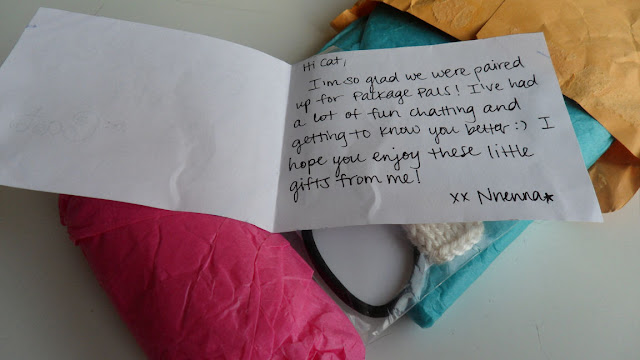 Hi Cat,
I'm so glad we were paired
up for Package Pals! I've had
a lot of fun chatting and
getting to know you better :) I
hope you enjoy these little
gifts from me!
xx Nnenna*